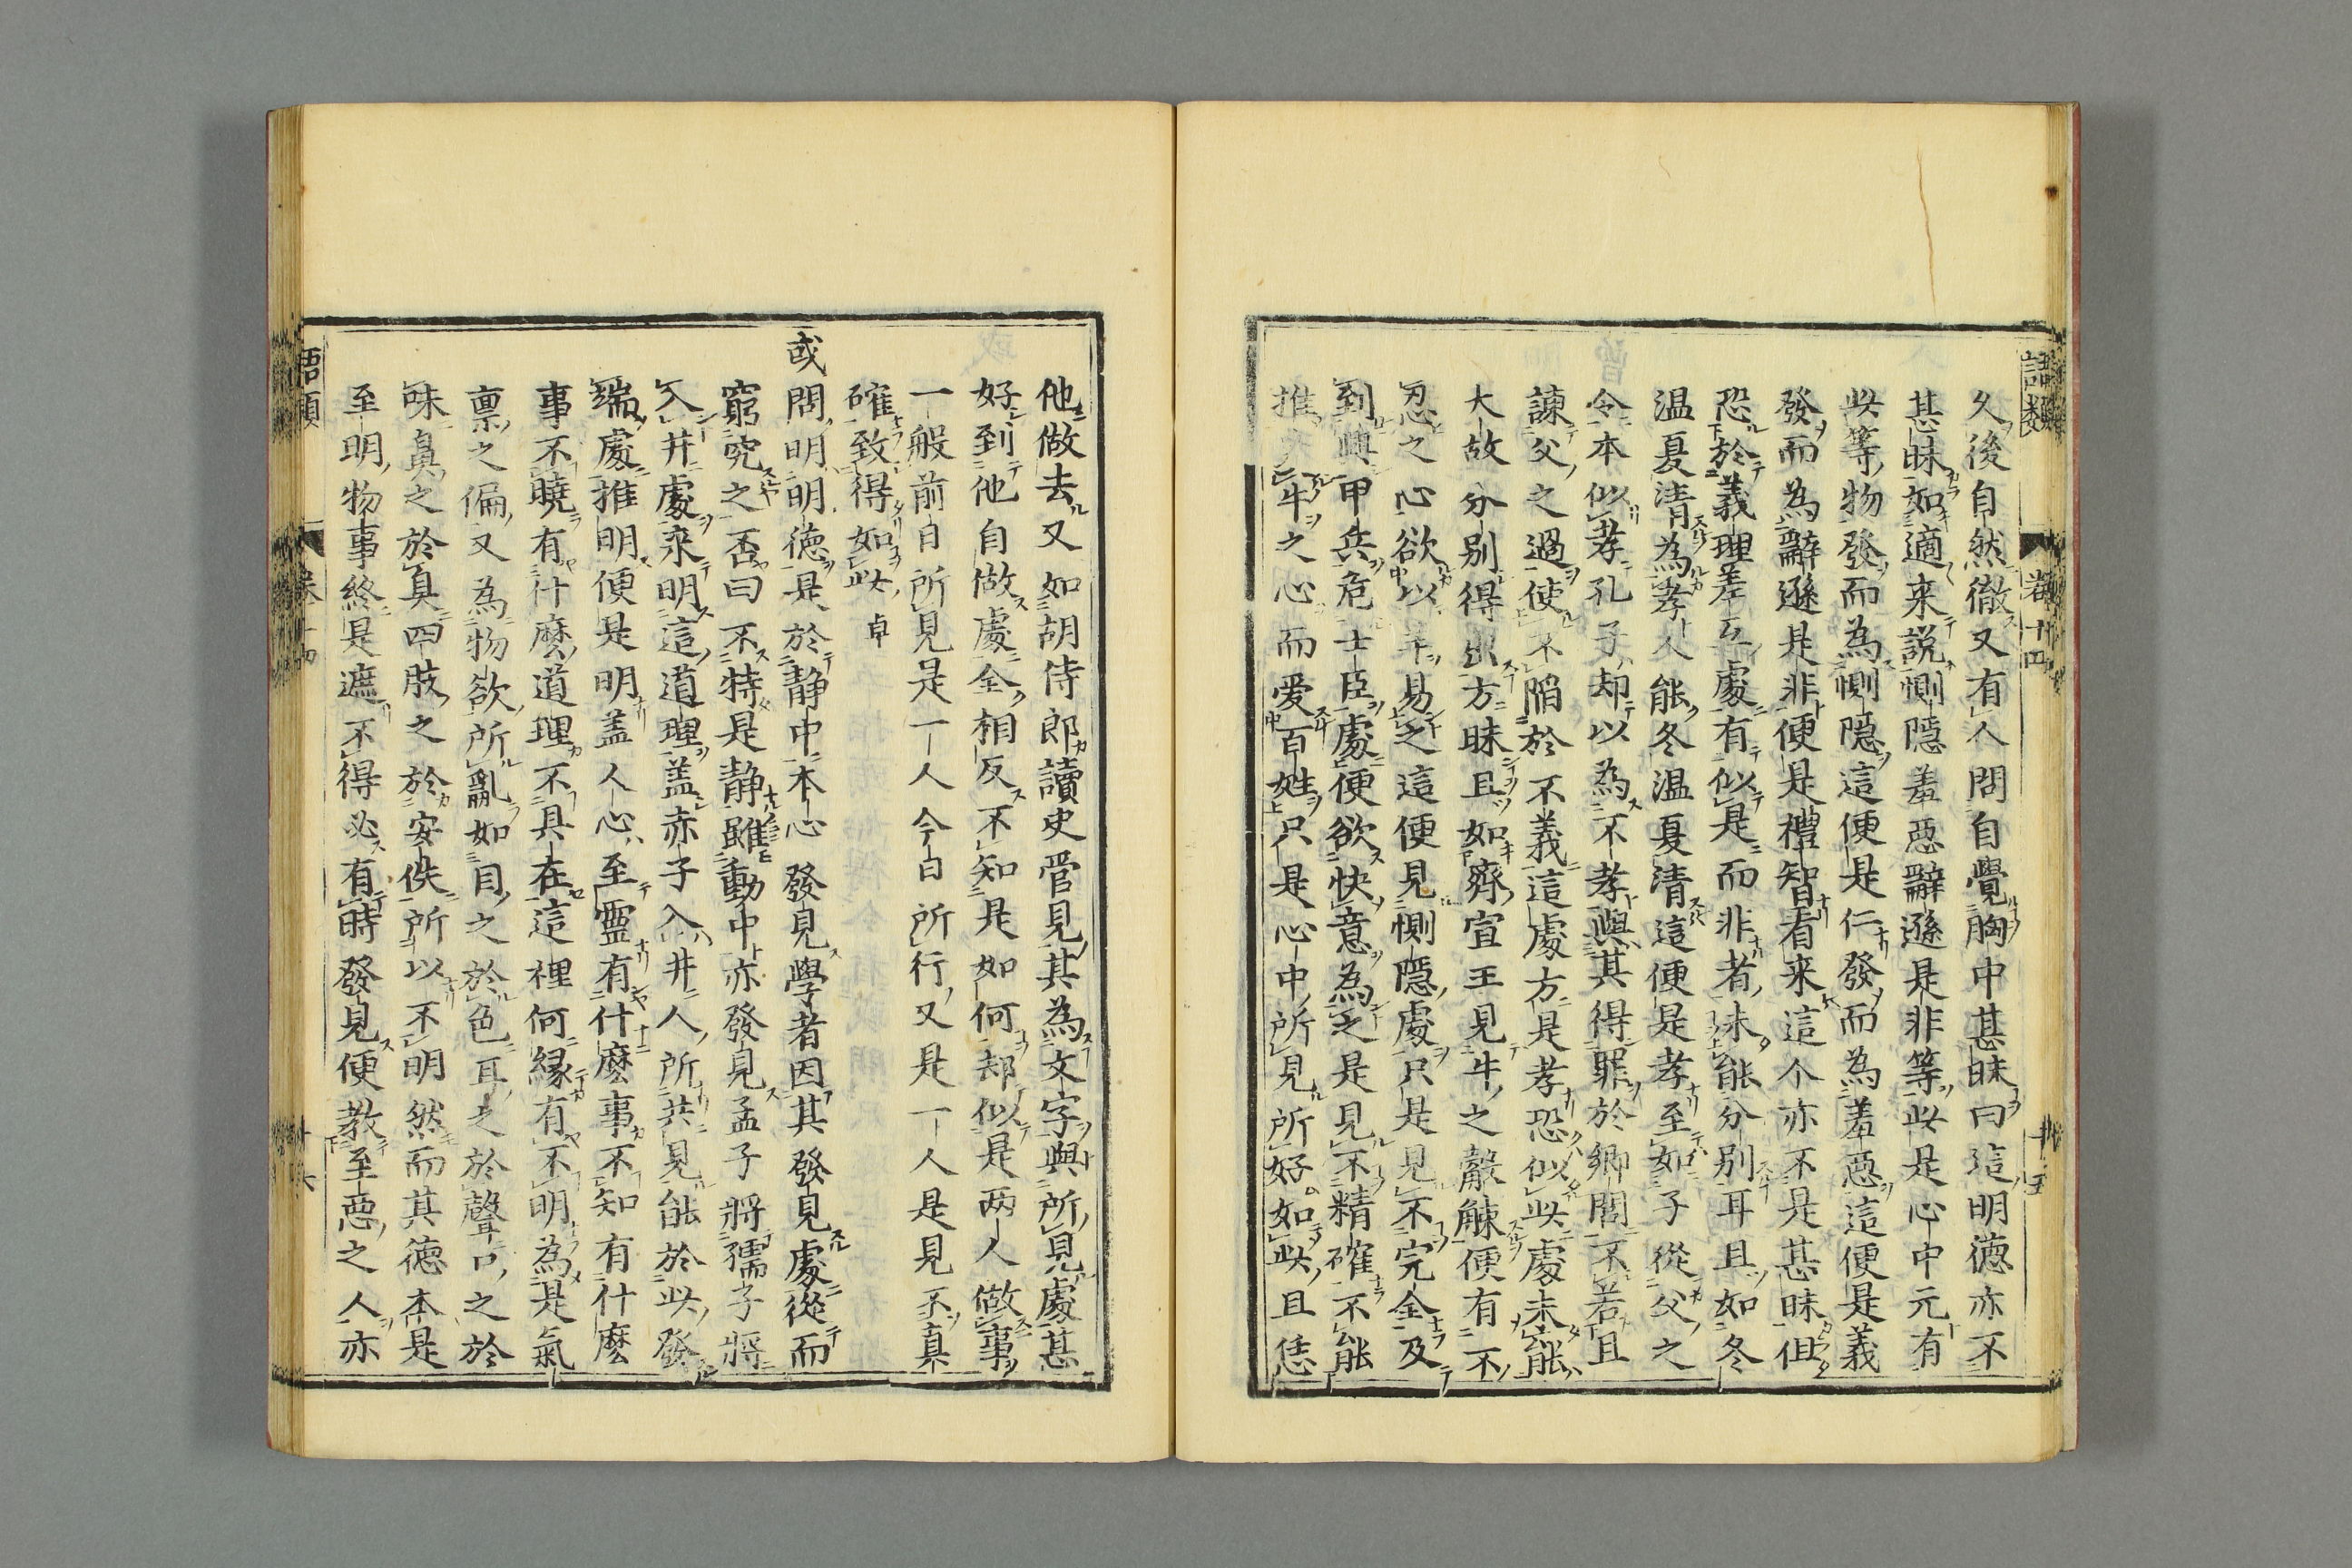 語類 卷十四 十五
久後自然徹又有人問自覺胸中甚昧曰這明德亦不
甚昧如適来説惻隠羞惡辭遜是非等此是心中元有
此等物發而為惻隠這便是仁發而為羞惡這便是義
發而為辭遜是非便是禮智看来這个亦不是甚昧但
恐於義理差互處有似是而非者未能分别耳且如冬
温夏清為孝人能冬温夏清這便是孝至如子從父之
令本似孝孔子却以為不孝與其得罪於郷閭不若且
諫父之過使不陥於不義這處方是孝恐似此處未能
大故分别得出方昧且如齊宣王見牛之觳觫便有不
忍之心欲以羊易之這便見惻隠處只是見不完全及
到興甲兵危士臣處便欲快意為之是見不精確不能
推愛牛之心而愛百姓只是心中所見所好如此且恁
他做去又如胡侍郎讀史管見其為文字與所見處甚
好到他自做處全相反不知是如何却似是两人做事
一般前日所見是一人今日所行又是一人是見不真
確致得如此卓
或問明明德是於静中本心發見學者因其發見處從而
窮究之否曰不特是静雖動中亦發見孟子將孺子將
入井處来明這道理盖赤子入井人所共見能於此發
端處推明便是明盖人心至靈有什麽事不知有什麽
事不曉有什麽道理不具在這裡何縁有不明為是氣
禀之偏又為物欲所亂如目之於色耳之於聲口之於
味鼻之於臭四肢之於安佚所以不明然而其德本是
至明物事終是遮不得必有時發見便教至惡之人亦
語類 卷十四 十六